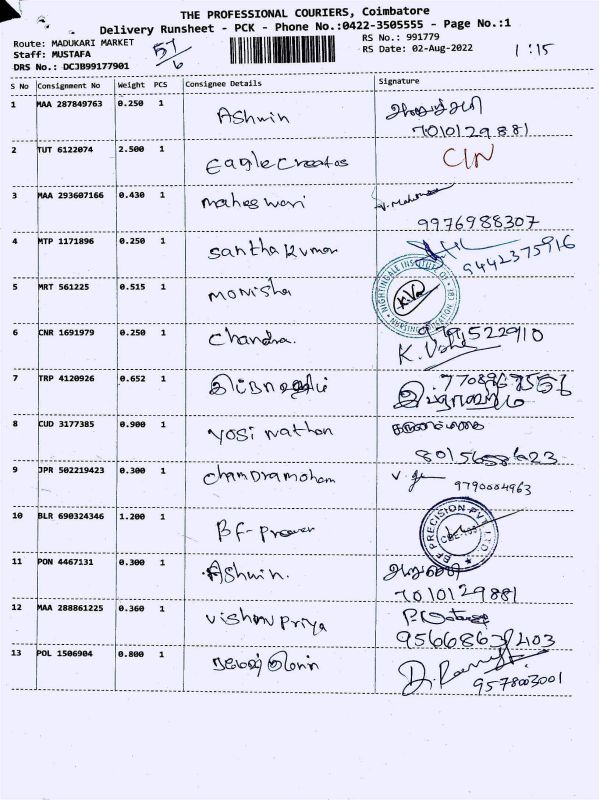 THE PROFESSIONAL COURIERS, Coimbatore
Delivery Runsheet - PCK - Phone No.:0422-3505555 - Page No.:1
Route: MADUKARI MARKET
RS No.: 991779
Staff: MUSTAFA
RS Date: 02-Aug-2022
1:15
57/6
DRS No.: DCJB99177901
S No Consignment No Weight PCS Consignee Details Signature
1 MAA 287849763 0.250 1 Ashwin
7010129881
2 TUT 6122074 2.500 1 Eagle Creatos CIN
3 MAA 293607166 0.430 1 maheswari
9976988307
4 MTP 1171896 0.250 1 Santha Kumar
9442375916
5 MRT 561225 0.515 1 monisha
NIGHTINGALE INSTITUTE OF NURSING EDUCATION CBE
6 CNR 1691979 0.250 1 Chandra. K. Usha
522910
7 TRP 4120926 0.652 1
8 CUD 3177385 0.900 1 yogi nathan
9 JPR 502219423 0.300 1 Chandramohan
9790004963
10 BLR 690324346 1.200 1 BF-
BF PRECISION PVT LTD
11 PON 4467131 0.300 1 Ashwin.
7010129881
12 MAA 288861225 0.360 1 Vishnu Priya
13 POL 1506904 0.800 1
9578003001